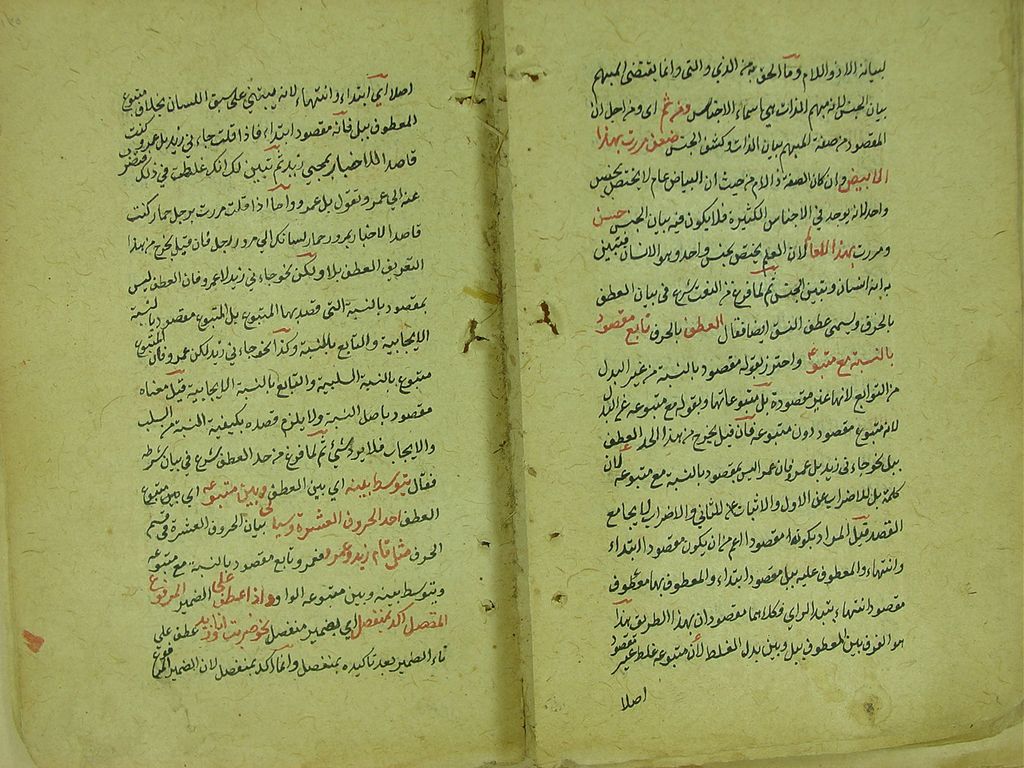 لبيانه الا ذو اللام وما الحق به من الذي والتي وانما يقتضى المبهم
بيان الجنس لانه مبهم الذات هي باسماء الاجناس ومن ثم اى ومن اجل ان
المقصود من صفة المبهم بيان الذات وكشف الجنس ضعف مررت بهذا
الابيض وان كان الصفة ذا اللام من حيث ان البياض عام لا يختص بجنس
واحد لانه يوجد في الاجناس الكثيرة فلا يكون فيه بيان الجنس حسن
ومررت بهذا العالم لان العلم يختص بجنس واحد وهو الانسان فيتبين
به انه انسان ويتبين الجنس ثم لما فرغ من النعت شرع في بيان العطف
بالحرف ويسمى عطف النسق ايضا فقال العطف بالحرف تابع مقصود
بالنسبة مع متبوعه واحترز بقوله مقصود بالنسبة من غير البدل
من التوابع لانها غير مقصودة بل متبوعاتها وبقوله مع متبوعه عن البدل
لانه متبوع مقصود دون متبوعه فان قيل يخرج من هذا الحد العطف
ببل نحو جاءني زيد بل عمرو فان عمرا ليس بمقصود بالنسبة مع متبوعه لان
كلمة بل للاضراب عن الاول والاثبات للثاني والاضراب لا يجامع
القصد قيل المراد بكونه مقصودا اعم من ان يكون مقصودا ابتداء
وانتهاء والمعطوف عليه ببل مقصود ابتداء والمعطوف بها معطوف
مقصود انتهاء بتبدل الراي فكلاهما مقصودان بهذا الطريق هذا
هو الفرق بين المعطوف ببل وبين بدل الغلط لان متبوعه غلط غير مقصود
اصلا
اصلا اي ابتداء وانتهاء لانه مبتني على سبق اللسان بخلاف متبوع
المعطوف ببل فانه مقصود ابتداء فاذا قلت جاءني زيد بل عمرو كنت
قاصدا للاخبار بمجيئ زيد ثم تبين لك انك غلطت في ذلك
عنه الى عمرو وتقول بل عمرو واما اذا قلت مررت برجل حمار كنت
قاصدا لاخبار بمرور حمار لسانك الى مرور رجل فان قيل يخرج من هذا
التعريف العطف بلا ولكن نحو جاءني زيد لا عمرو فان العطف ليس
بمقصود بالنسبة التي قصد بها المتبوع بل المتبوع مقصود بالنسبة
الايجابية والتابع بالنسبة وكذا نحو جاءني زيد لكن عمرو فان المتبوع
متبوع بالنسبة السلبية والتابع بالنسبة الايجابية قيل معناه
مقصود باصل النسبة ولا يلزم قصده بكيفية النسبة من السلب
والايجاب فلا يرد شئ ثم لما فرغ من حد العطف شرع في بيان شرطه
فقال يتوسط بينه اي بين العطف وبين متبوعه اي بين متبوع
العطف احد الحروف العشرة وسياتي بيان الحروف العشرة في قسم
الحرف مثل قام زيد وعمرو فعمرو تابع مقصود بالنسبة مع متبوعه
ويتوسط بينه وبين متبوعه الواو واذا عطف على الضمير المرفوع
المتصل اكد بمنفصل اي بضمير منفصل نحو ضربت انا وزيد عطف على
تاء الضمير بعد تاكيده بمنفصل وانما اكد بمنفصل لان الضمير المرفوع